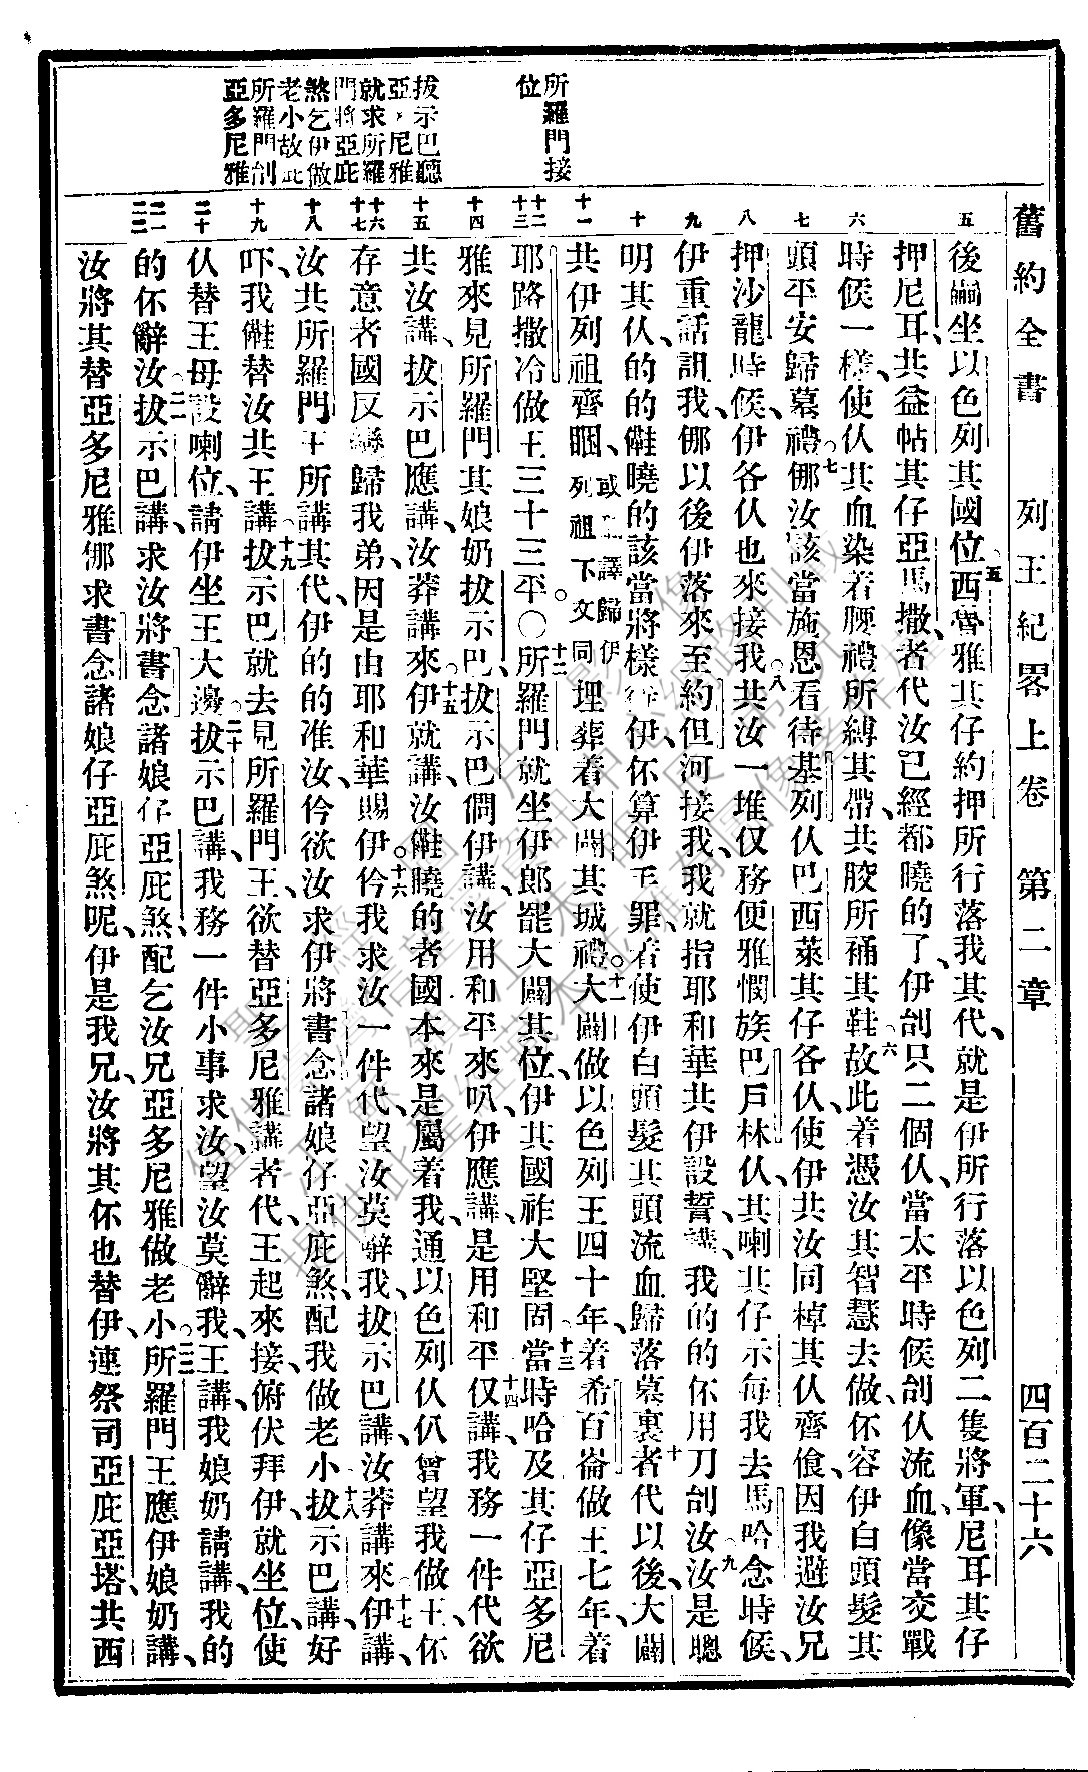 舊約全書 列王紀畧上卷 第二章 四百二十六
所羅門接
位
拔示巴聽
亞多尼雅
就求所羅
門將亞庇
煞乞伊做
老小故此
所羅門刣
亞多尼雅
五
六
七
八
九
十
十一
十二
十三
十四
十五
十六
十七
十八
十九
二十
二一
二二
後嗣坐以色列其國位五西魯雅其仔約押所行落我其代、就是伊所行落以色列二隻將軍、尼耳其仔
押尼耳、共益帖其仔亞馬撒、者代汝已經都曉的了、伊刣只二個仈當太平時候刣仈流血、像當交戰
時候一樣、使仈其血染着腰禮所縛其帶、共骹所穿其鞋六故此着憑汝其智慧去做、伓容伊白頭髮其
頭平安歸墓禮七那汝該當施恩看待基列仈巴西萊其仔各仈、使伊共汝同棹其仈齊食、因我避汝兄
押沙龍時候、伊各仈也來接我、共汝一堆八仅務便雅憫族巴戶林仈、其喇其仔示每、我去馬哈念時候、
伊重話詛我、那以後伊落來至約但河接我、我就指耶和華共伊設誓講、我的的伓用刀刣汝九汝是聰
明其仈、的的𣍐曉的該當將樣待伊、伓算伊毛罪、着使伊白頭髮其頭流血歸落墓裏十者代以後、大闢
共伊列祖齊睏、或翻譯歸伊列祖下文同埋葬着大闢其城禮十一大闢做以色列王四十年、着希百崙做王七年、着
耶路撒冷做王三十三年。〇十二所羅門就坐伊郎罷大闢其位、伊其國祚大堅固十三當時哈及其仔亞多尼
雅來見所羅門其娘奶拔示巴、拔示巴問伊講、汝用和平來叭、伊應講、是用和平十四仅講、我務一件代欲
共汝講、拔示巴應講、汝莽講來十五伊就講、汝𣍐曉的者國本來是屬着我、通以色列仈仈曾望我做王、伓
存意者國反轉歸我弟、因是由耶和華賜伊。十六伶我求汝一件代、望汝莫辭我、拔示巴講、汝莽講來十七伊講、
汝共所羅門王所講其代伊的的准汝、伶欲汝求伊將書念諸娘仔亞庇煞、配我做老小十八拔示巴講、好
吓、我𣍐替汝共王講十九拔示巴就去見所羅門王、欲替亞多尼雅講者代、王起來接、俯伏拜伊、就坐位、使
仈替王母設喇位、請伊坐王大邊二十拔示巴講、我務一件小事求汝、望汝莫辭我、王講、我娘奶請講、我的
的伓辭汝二一拔示巴講、求汝將書念諸娘仔亞庇煞、配乞汝兄亞多尼雅做老小二二所羅門王應伊娘奶講、
汝將其替亞多尼雅那求書念諸娘仔亞庇煞呢、伊是我兄、汝將其伓也替伊、連祭司亞庇亞塔、共西